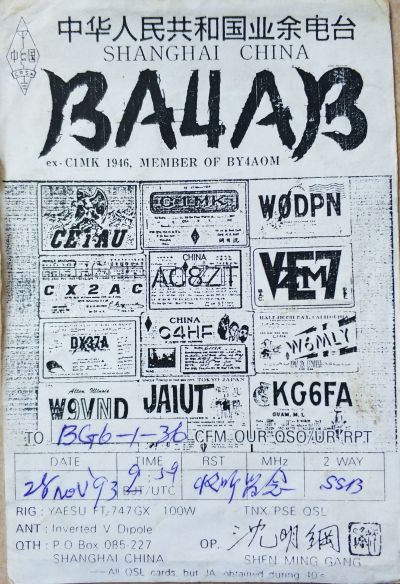 中华人民共和国业余电台
SHANGHAI CHINA
BA4AB
ex-C1MK 1946, MEMBER OF BY4AOM
CE1AU
C1MK
WØDPN
CX2AC
CHINA
AC8ZT
CHINA
C4HF
W6MLY
Alton, Illinois
W9VND
TOKYO JAPAN
JA1UT
KG6FA
GUAM, M.I.
TO BG6-1-36 CFM OUR QSO/UR RPT
DATE TIME RST MHz 2 WAY
28 Nov '93 9:59 BJT/UTC 收听留念 SSB
RIG : YAESU FT-747GX 100W TNX PSE QSL
ANT : Inverted V Dipole
QTH : P.O Box 085-227 OP. 沈明綱
SHANGHAI CHINA SHEN MING GANG
All QSL cards, but JA, obtained during 40s